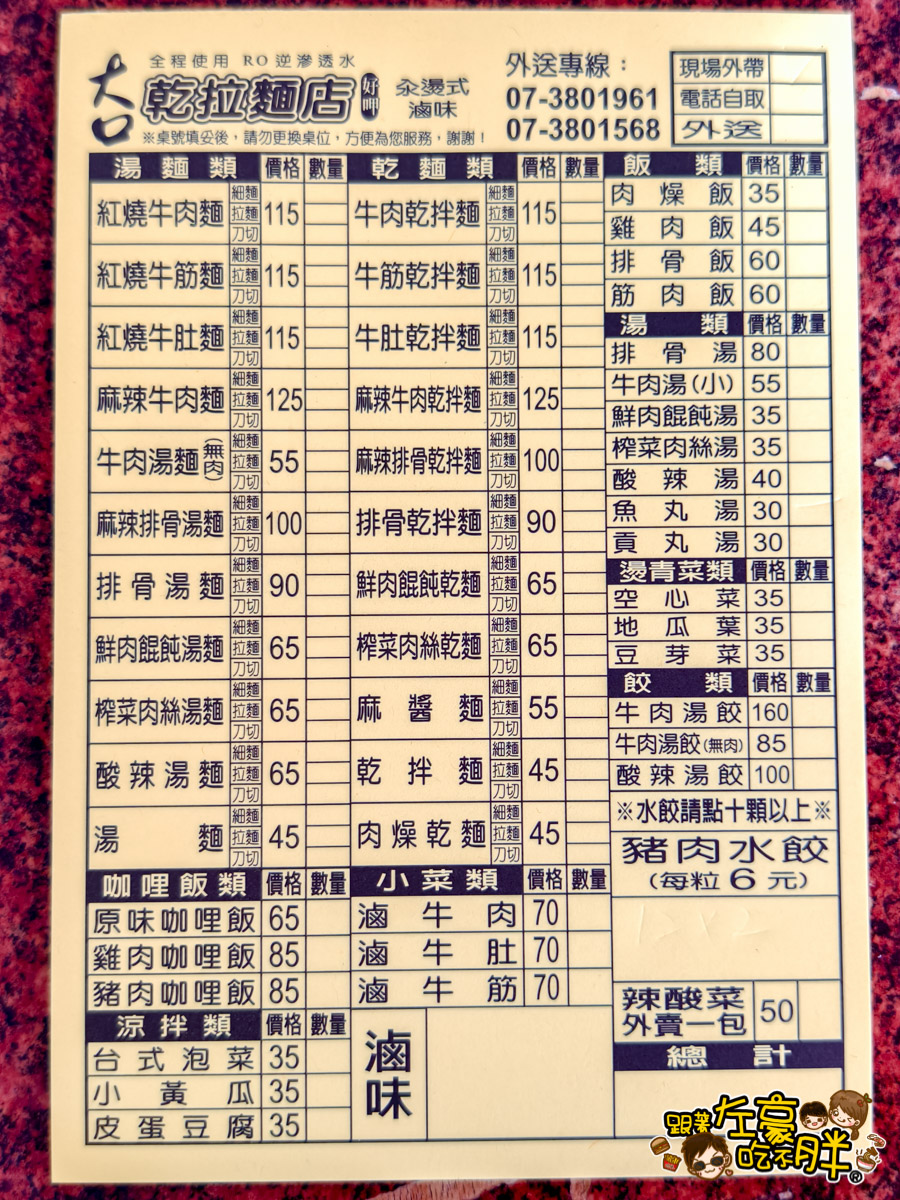 全程使用 RO逆滲透水
大口
乾拉麵店
好呷
汆燙式
滷味
外送專線：
07-3801961
07-3801568
※桌號填妥後，請勿更換桌位，方便為您服務，謝謝！
現場外帶
電話自取
外送
湯麵類 價格 數量
紅燒牛肉麵 細麵 拉麵 刀切 115
紅燒牛筋麵 細麵 拉麵 刀切 115
紅燒牛肚麵 細麵 拉麵 刀切 115
麻辣牛肉麵 細麵 拉麵 刀切 125
牛肉湯麵(無肉) 細麵 拉麵 刀切 55
麻辣排骨湯麵 細麵 拉麵 刀切 100
排骨湯麵 細麵 拉麵 刀切 90
鮮肉餛飩湯麵 細麵 拉麵 刀切 65
榨菜肉絲湯麵 細麵 拉麵 刀切 65
酸辣湯麵 細麵 拉麵 刀切 65
湯麵 細麵 拉麵 刀切 45
咖哩飯類 價格 數量
原味咖哩飯 65
雞肉咖哩飯 85
豬肉咖哩飯 85
涼拌類 價格 數量
台式泡菜 35
小黃瓜 35
皮蛋豆腐 35
乾麵類 價格 數量
牛肉乾拌麵 細麵 拉麵 刀切 115
牛筋乾拌麵 細麵 拉麵 刀切 115
牛肚乾拌麵 細麵 拉麵 刀切 115
麻辣牛肉乾拌麵 細麵 拉麵 刀切 125
麻辣排骨乾拌麵 細麵 拉麵 刀切 100
排骨乾拌麵 細麵 拉麵 刀切 90
鮮肉餛飩乾麵 細麵 拉麵 刀切 65
榨菜肉絲乾麵 細麵 拉麵 刀切 65
麻醬麵 細麵 拉麵 刀切 55
乾拌麵 細麵 拉麵 刀切 45
肉燥乾麵 細麵 拉麵 刀切 45
小菜類 價格 數量
滷牛肉 70
滷牛肚 70
滷牛筋 70
滷味
飯類 價格 數量
肉燥飯 35
雞肉飯 45
排骨飯 60
筋肉飯 60
湯類 價格 數量
排骨湯 80
牛肉湯(小) 55
鮮肉餛飩湯 35
榨菜肉絲湯 35
酸辣湯 40
魚丸湯 30
貢丸湯 30
燙青菜類 價格 數量
空心菜 35
地瓜葉 35
豆芽菜 35
餃類 價格 數量
牛肉湯餃 160
牛肉湯餃(無肉) 85
酸辣湯餃 100
※水餃請點十顆以上※
豬肉水餃
(每粒6元)
辣酸菜
外賣一包 50
總計
跟著左豪吃不胖®